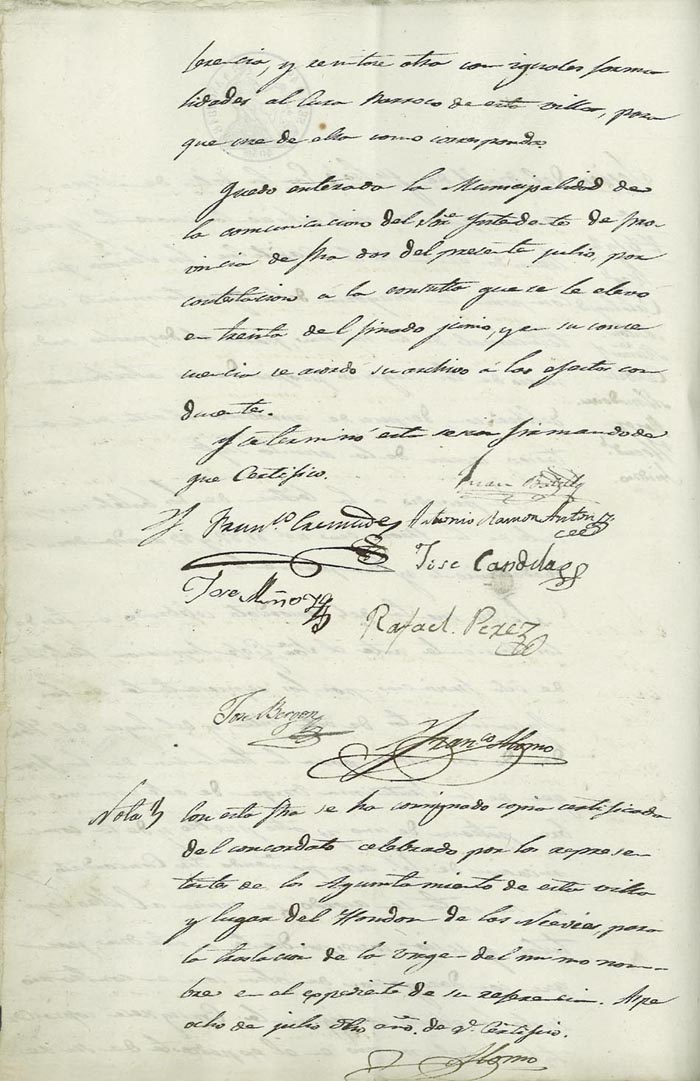 rencia, y remitase otra con iguales forma
lidades al Cura Parroco de esta villa, para
que use de ella como corresponda.
Quedó enterada la Municipalidad de
la comunicacion del Sor. Intendente de pro
vincia de fha dos del presente julio, por
contestacion a la consulta que se le elevó
en treinta del finado junio, y en su conse
cuencia se acordó su archivo á los efectos con
ducentes.
Y se terminó esta sesion firmando de
que Certifico.
Juan
Franco.
Antonio Ramon Anton
Jose Candela
Jose Muñoz
Rafael Perez
Jose
Franco. Alorno
Nota
Con esta fha se ha consignado copia certificada
del concordato celebrado por los represen
tantes de los Ayuntamiento de esta villa
y lugar del Hondon de las Nieves, para
la traslacion de la Virgen del mismo nom-
bre en el expediente de su referencia. Aspe
ocho de julio dho año. de qe. Certifico.
Alorno